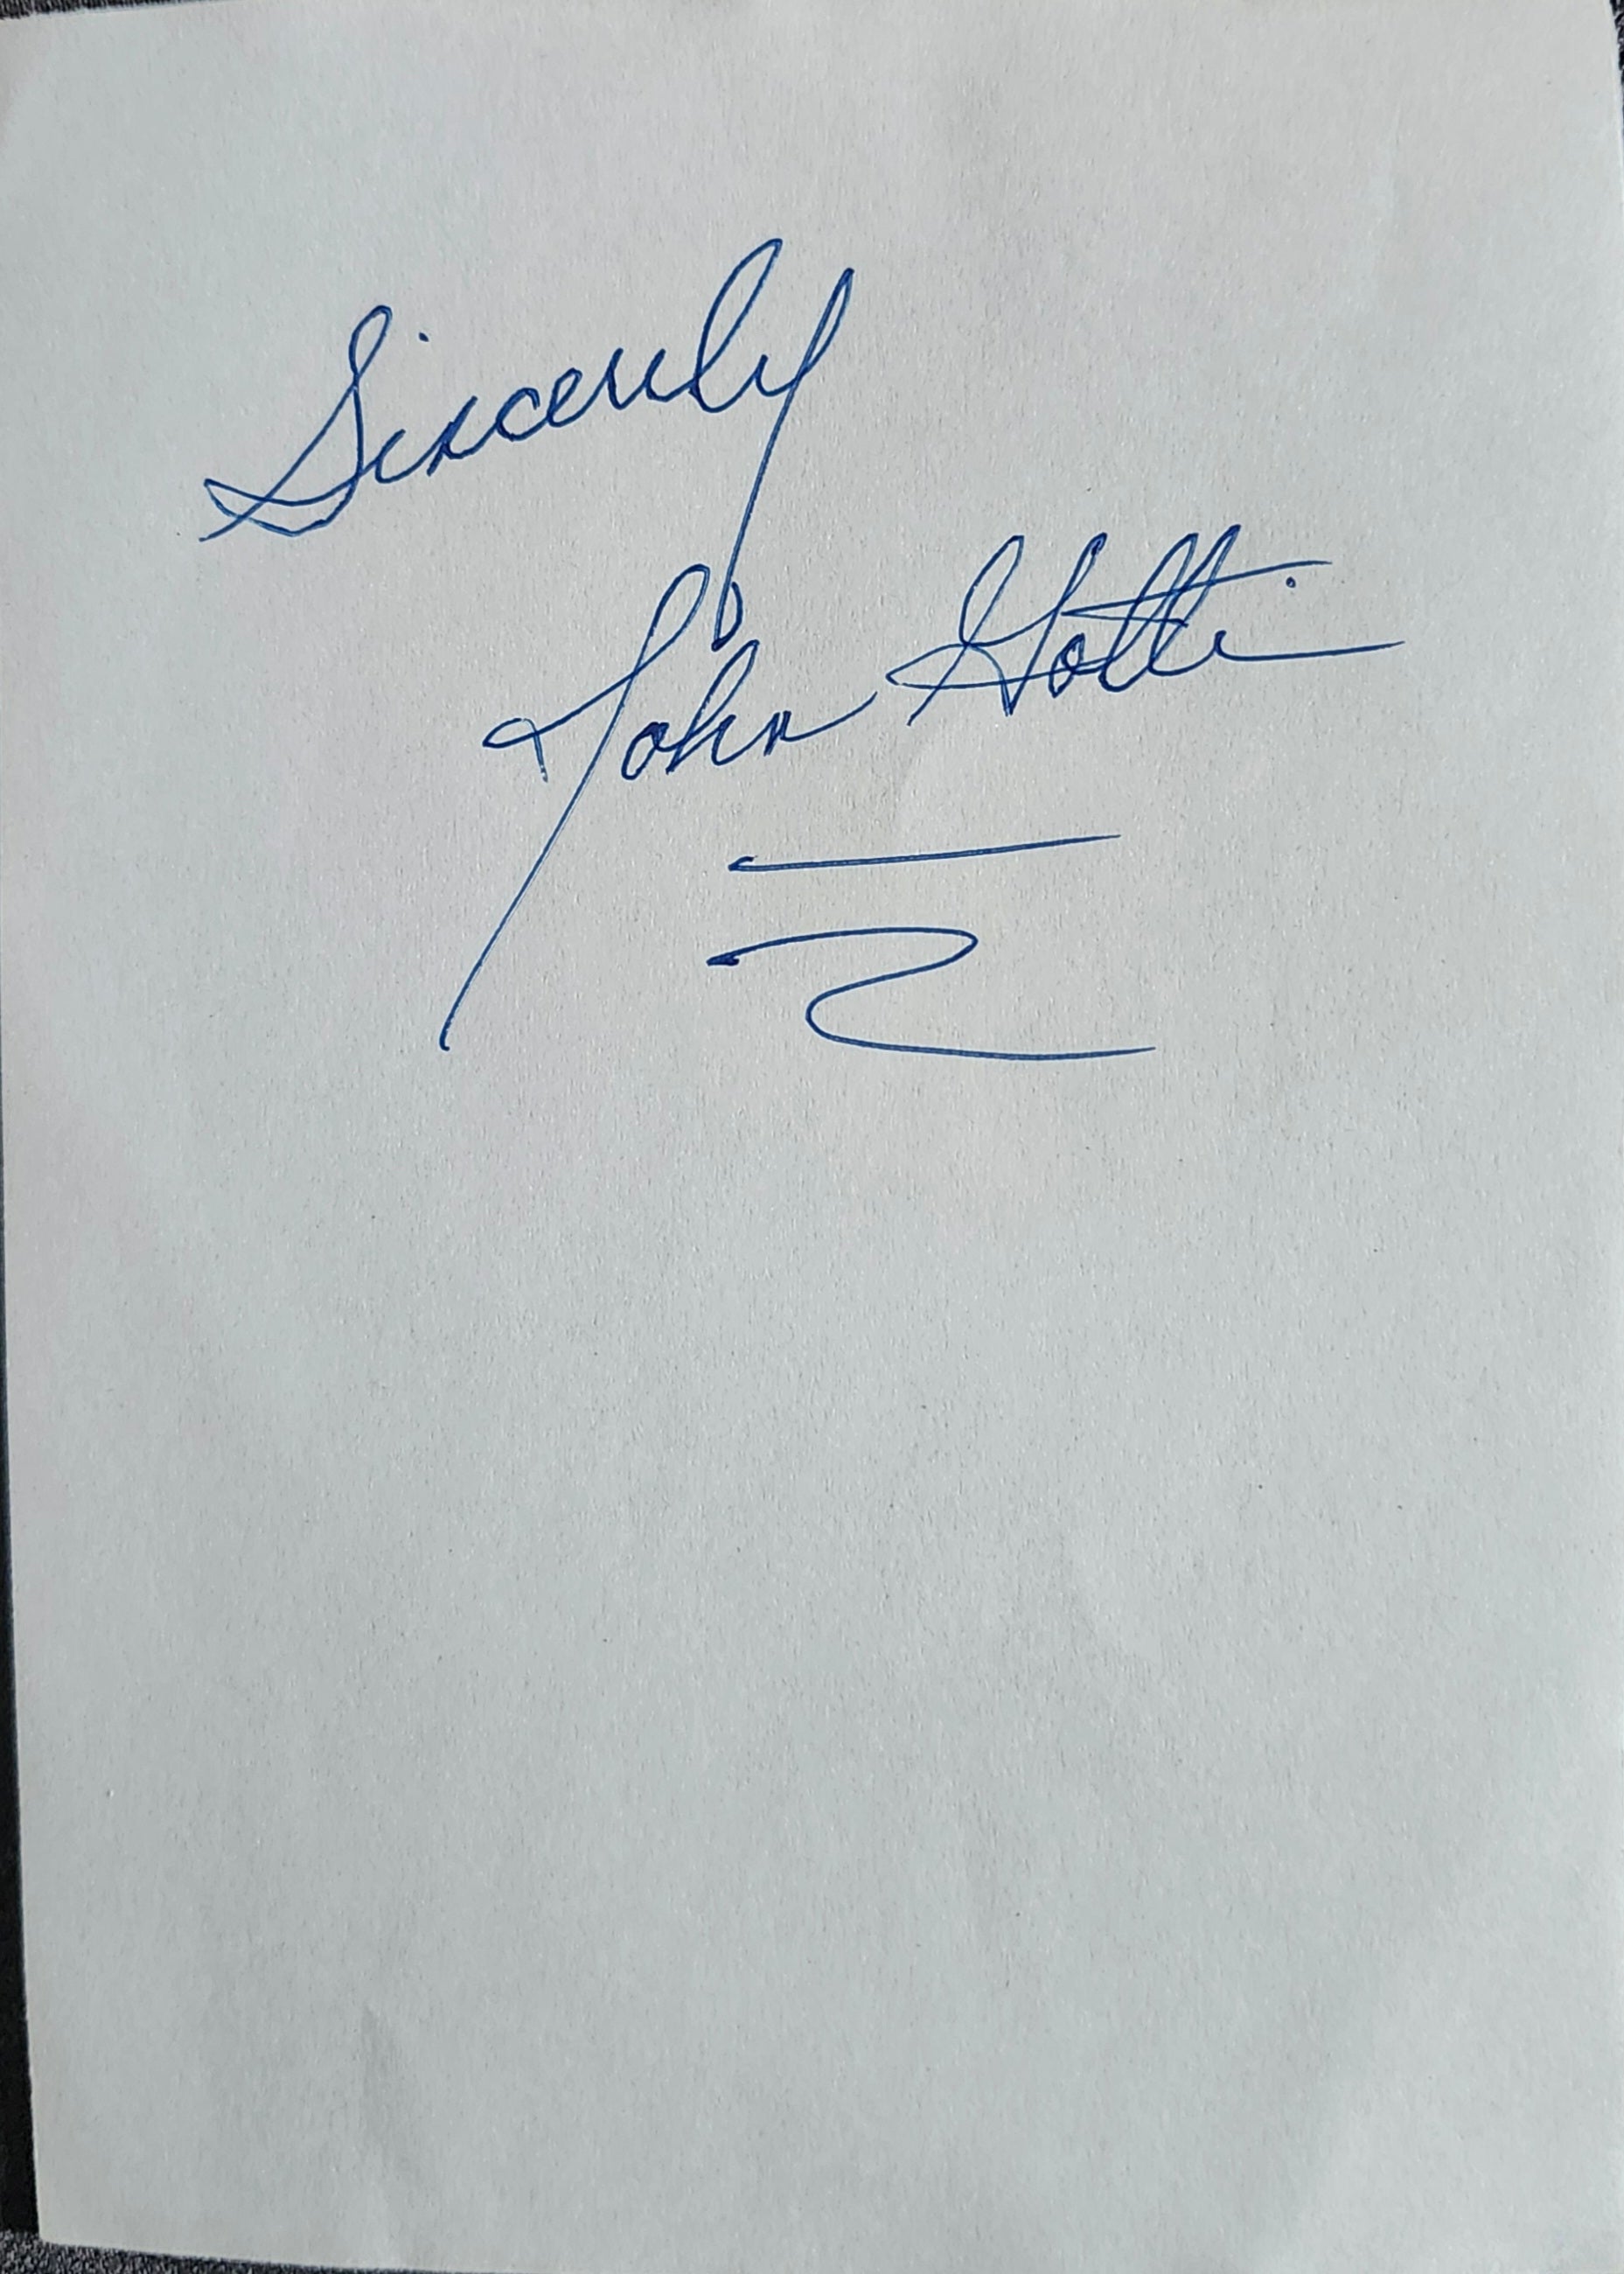 Sincerely
John Gotti